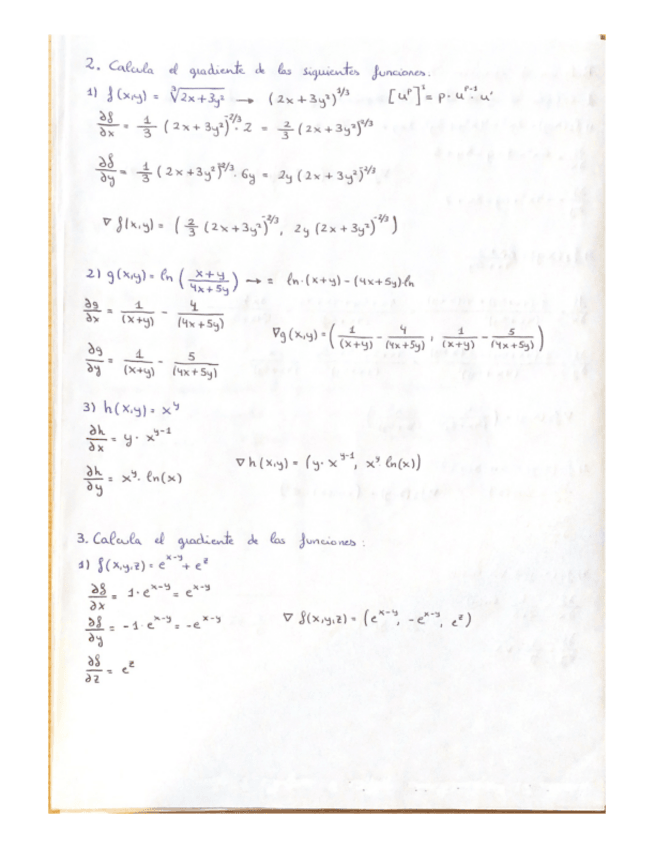 2. Calcula el gradiente de las siguientes funciones.
1) f(x,y) = ∛(2x+3y²) → (2x+3y²)^(1/3) [u^p]' = p·u^(p-1)·u'
∂f/∂x = 1/3 (2x+3y²)^(-2/3)·2 = 2/3 (2x+3y²)^(-2/3)
∂f/∂y = 1/3 (2x+3y²)^(-2/3)·6y = 2y (2x+3y²)^(-2/3)
∇f(x,y) = (2/3 (2x+3y²)^(-2/3), 2y (2x+3y²)^(-2/3))
2) g(x,y) = ln ((x+y)/(4x+5y)) → = ln·(x+y) - (4x+5y)·ln
∂g/∂x = 1/(x+y) - 4/(4x+5y)
∇g(x,y) = (1/(x+y) - 4/(4x+5y), 1/(x+y) - 5/(4x+5y))
∂g/∂y = 1/(x+y) - 5/(4x+5y)
3) h(x,y) = x^y
∂h/∂x = y·x^(y-1)
∇h(x,y) = (y·x^(y-1), x^y·ln(x))
∂h/∂y = x^y·ln(x)
3. Calcula el gradiente de las funciones:
1) f(x,y,z) = e^(x-y) + e^z
∂f/∂x = 1·e^(x-y) = e^(x-y)
∂f/∂y = -1·e^(x-y) = -e^(x-y) ∇f(x,y,z) = (e^(x-y), -e^(x-y), e^z)
∂f/∂z = e^z